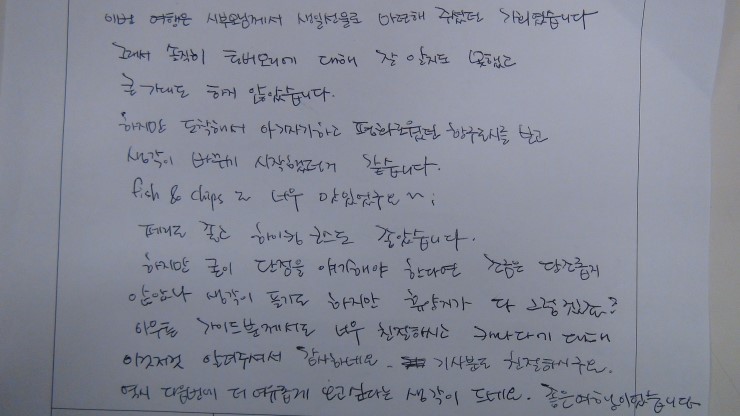 이번 여행은 시부모님께서 생일선물로 마련해 주셨던 자리였습니다
그래서 솔직히 토버모리에 대해 잘 알지도 못했고
큰 기대도 하지 않았습니다.
하지만 도착해서 아기자기하고 평화로웠던 항구도시를 보고
생각이 바뀌기 시작했던거 같습니다.
fish & chips 도 너무 맛있었구요~;
페리도 좋고 하이킹 코스도 좋았습니다.
하지만 굳이 단점을 얘기해야 한다면 조금은 단조롭지
않았나 생각이 들기도 하지만 휴양지가 다 그렇겠죠?
아무튼 가이드분께서도 너무 친절하시고 캐나다에 대해
이것저것 알려주셔서 감사하네요. 기사분도 친절하시구요.
역시 다음번에 더 여유롭게 오고싶다는 생각이 드네요. 좋은여행이었습니다